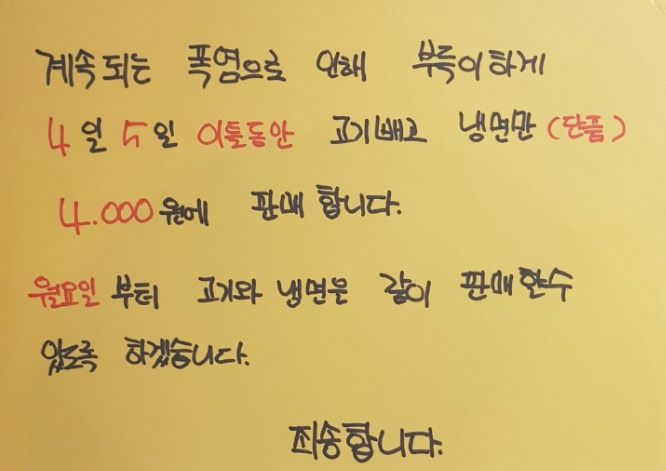 계속되는 폭염으로 인해 부득이하게
4일 5일 이틀동안 고기빼고 냉면만 (단품)
4.000원에 판매 합니다.
월요일 부터 고기와 냉면은 같이 판매 할수
있도록 하겠습니다.
죄송합니다.